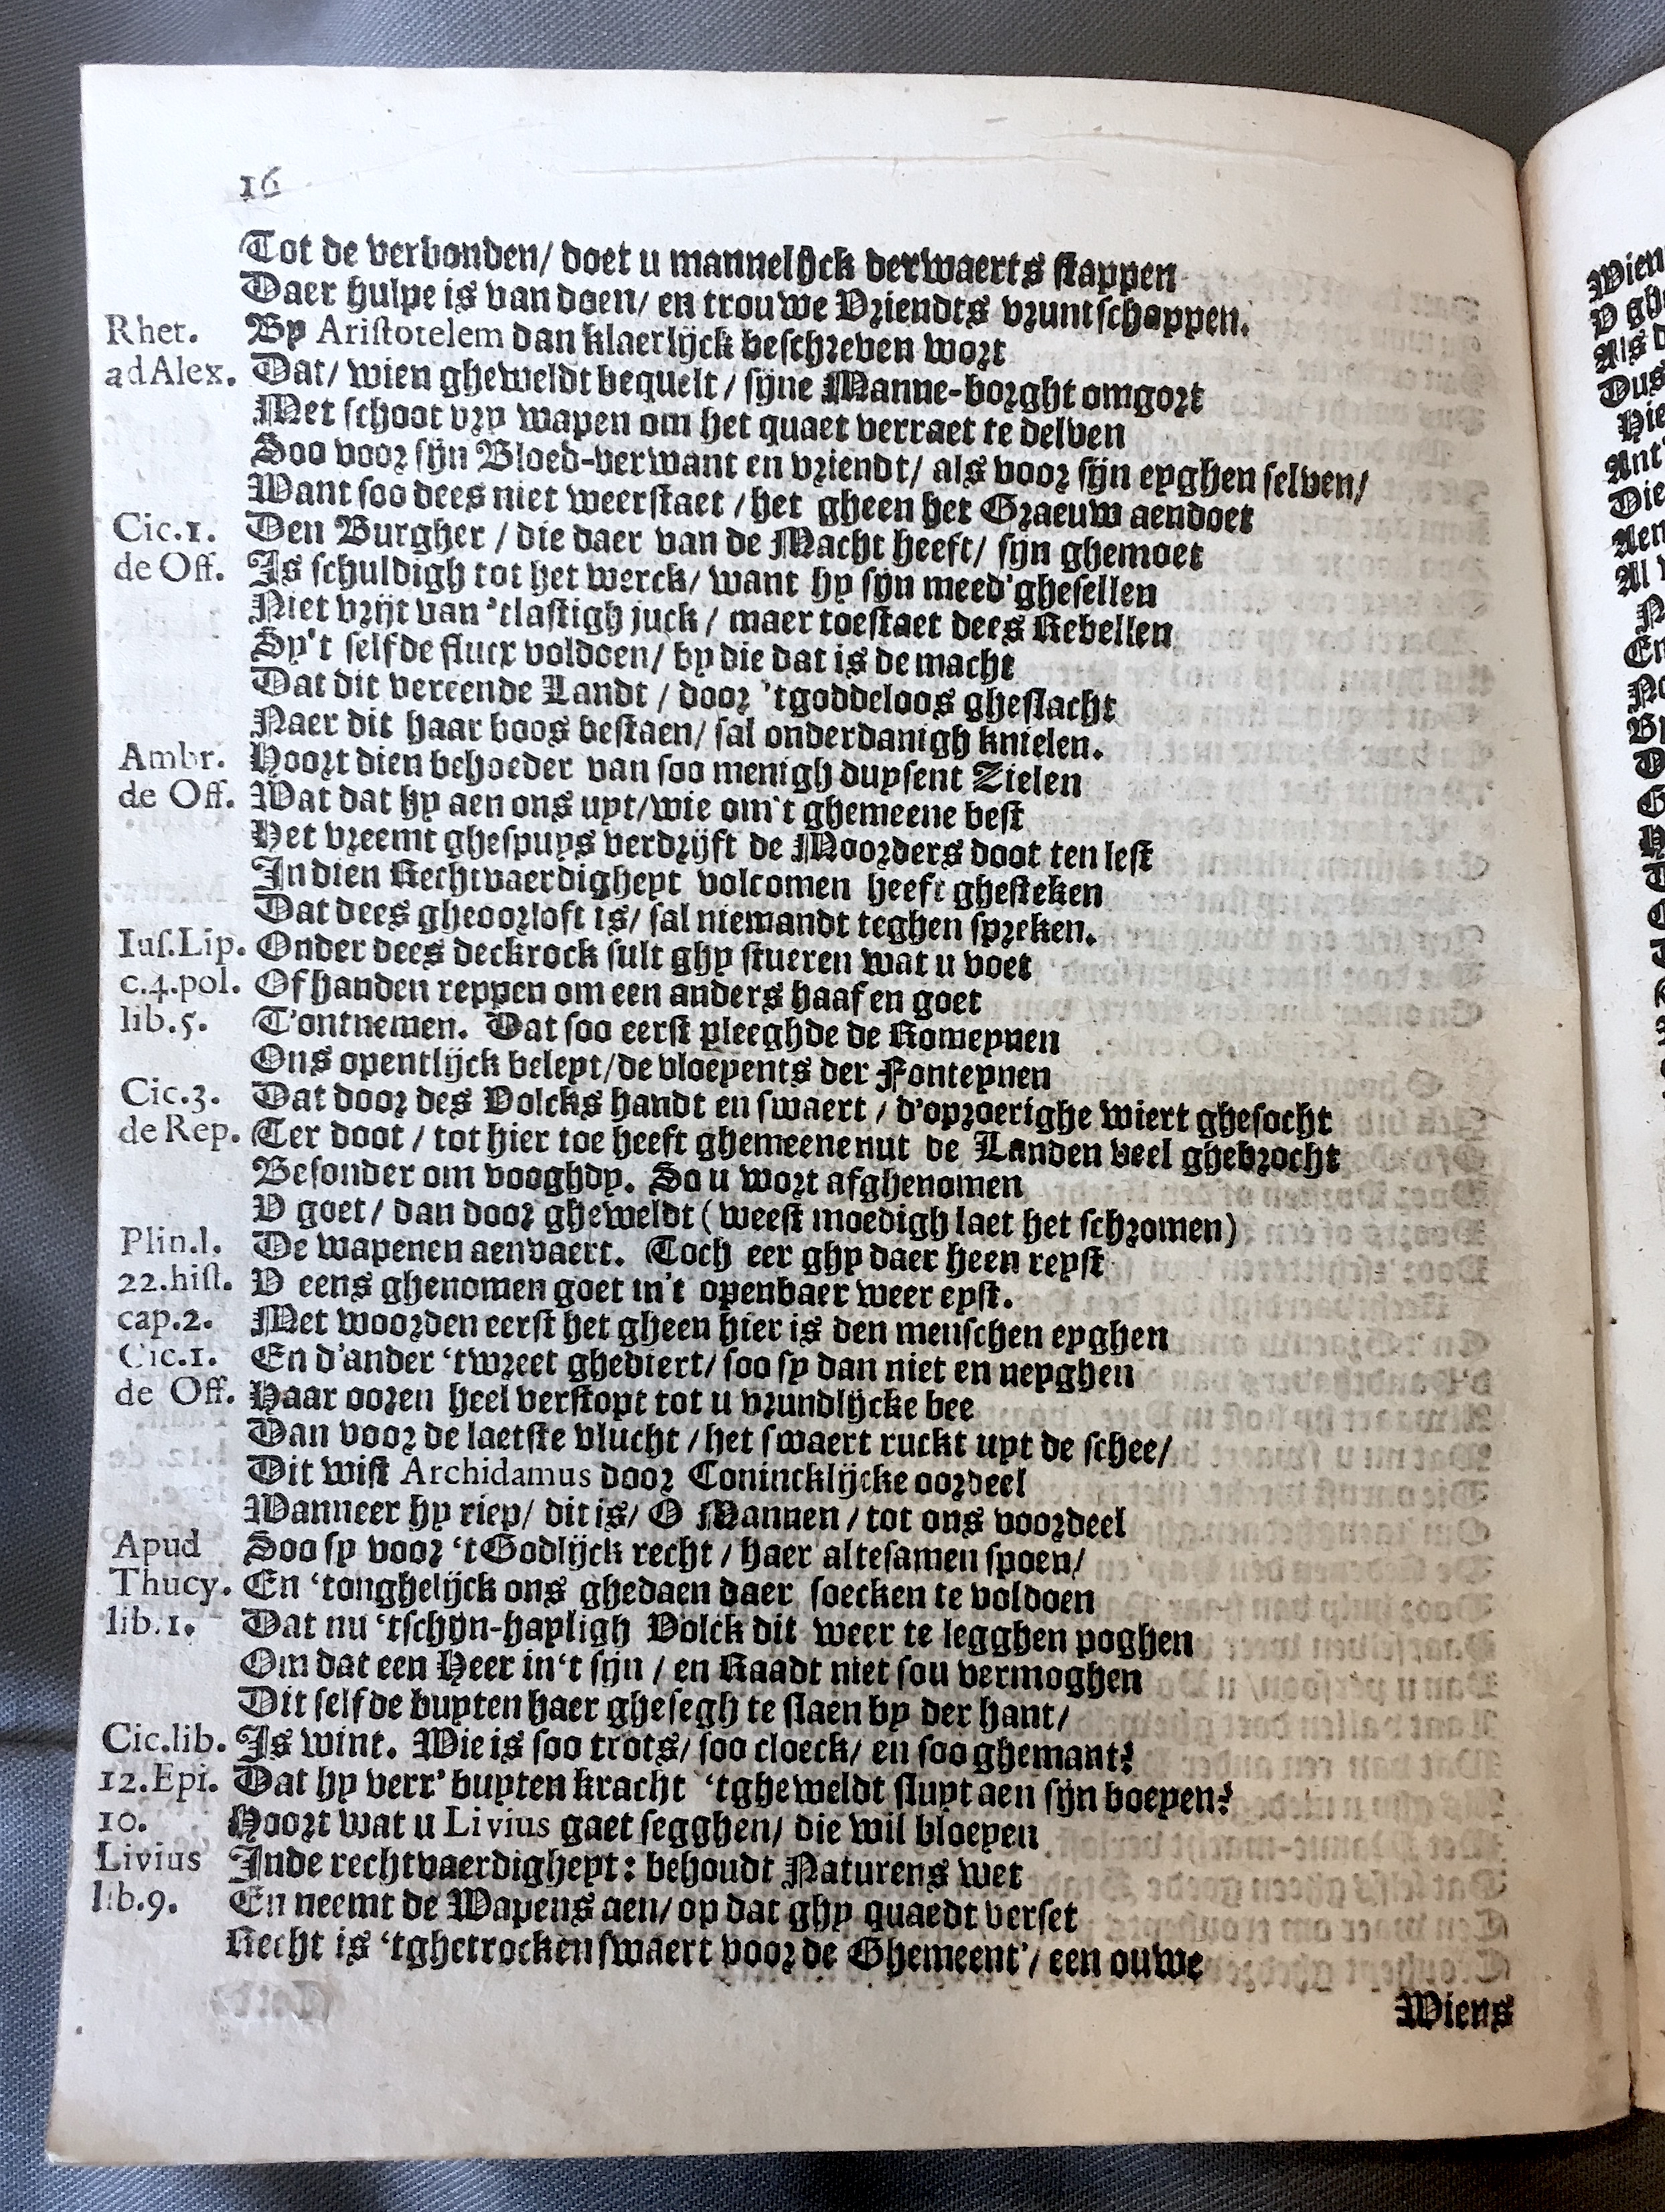 16
Tot de verbonden/ doet u mannelijck derwaerts stappen
Daer hulpe is van doen/ en trouwe Vriendts vruntschappen.
Rhet. By Aristotelem dan klaerlijck beschreven wort
ad Alex. Dat/ wien gheweldt bequelt / sijne Manne-borght omgort
Met schoot vry wapen om het quaet verraet te delven
Soo voor sijn Bloed-verwant en vriendt/ als voor sijn eyghen selven/
Want soo dees niet weerstaet / het gheen het Graeuw aendoet
Cic.1. Den Burgher / die daer van de Macht heeft/ sijn ghemoet
de Off. Is schuldigh tot het werck/ want hy sijn meed'ghesellen
Niet vrijt van 'tlastigh juck / maer toestaet dees Rebellen
Sy't selfde flucx voldoen/ by die dat is de macht
Dat dit vereende Landt / door 'tgoddeloos gheslacht
Naer dit haar boos bestaen/ sal onderdanigh knielen.
Ambr. Hoort dien behoeder van soo menigh duysent Zielen
de Off. Wat dat hy aen ons uyt/wie om't ghemeene best
Het vreemt ghespuys verdrijft de Moorders doot ten lest
Indien Rechtvaerdigheyt volcomen heeft ghesteken
Dat dees gheoorloft is/ sal niemandt teghen spreken.
Iuſ.Lip. Onder dees deckrock sult ghy stueren wat u voet
c.4.pol. Of handen reppen om een anders haaf en goet
lib.5. T'ontnemen. Dat soo eerst pleeghde de Romeynen
Ons opentlijck beleyt/de vloeyents der Fonteynen
Cic.3. Dat door des Volcks handt en swaert / d'oproerighe wiert ghesocht
de Rep. Ter doot / tot hier toe heeft ghemeene nut de Landen veel ghebrocht
Besonder om vooghdy. So u wort afghenomen
V goet/ dan door gheweldt (weest moedigh laet het schromen)
Plin.l. De wapenen aenvaert. Toch eer ghy daer heen reyst
22.hiſt. V eens ghenomen goet in't openbaer weer eyst.
cap.2. Met woorden eerst het gheen hier is den menschen eyghen
Cic.1. En d'ander 'twreet ghediert/ soo sy dan niet en neyghen
de Off. Haar ooren heel verstopt tot u vrundlijcke bee
Dan voor de laetste vlucht / het swaert ruckt uyt de schee/
Dit wist Archidamus door Conincklijcke oordeel
Wanneer hy riep/ dit is/ O Mannen / tot ons voordeel
Apud Soo sy voor 'tGodlijck recht / haer altesamen spoen/
Thucy. En 'tonghelijck ons ghedaen daer soecken te voldoen
lib.1. Dat nu 'tschijn-hayligh Volck dit weer te legghen poghen
Om dat een Heer in't sijn / en Raadt niet sou vermoghen
Dit selfde buyten haer ghesegh te slaen by der hant/
Cic.lib. Is wint. Wie is soo trots/ soo cloeck/ en soo ghemant?
12.Epi. Dat hy verr' buyten kracht 'tgheweldt sluyt aen sijn boeyen?
10. Hoort wat u Livius gaet segghen/ die wil bloeyen
Livius Inde rechtvaerdigheyt: behoudt Naturens wet
lib.9. En neemt de Wapens aen/ op dat ghy quaedt verset
Recht is 'tghetrocken swaert voor de Ghemeent'/ een ouwe
Wiens